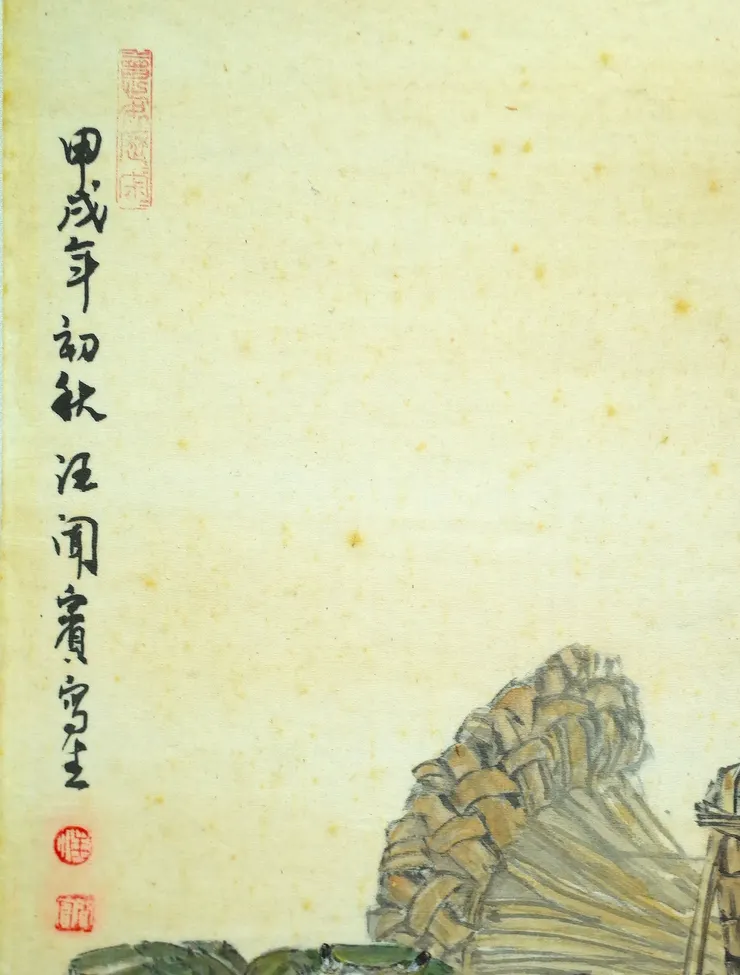 甲戌年初秋汪闻賓寫生